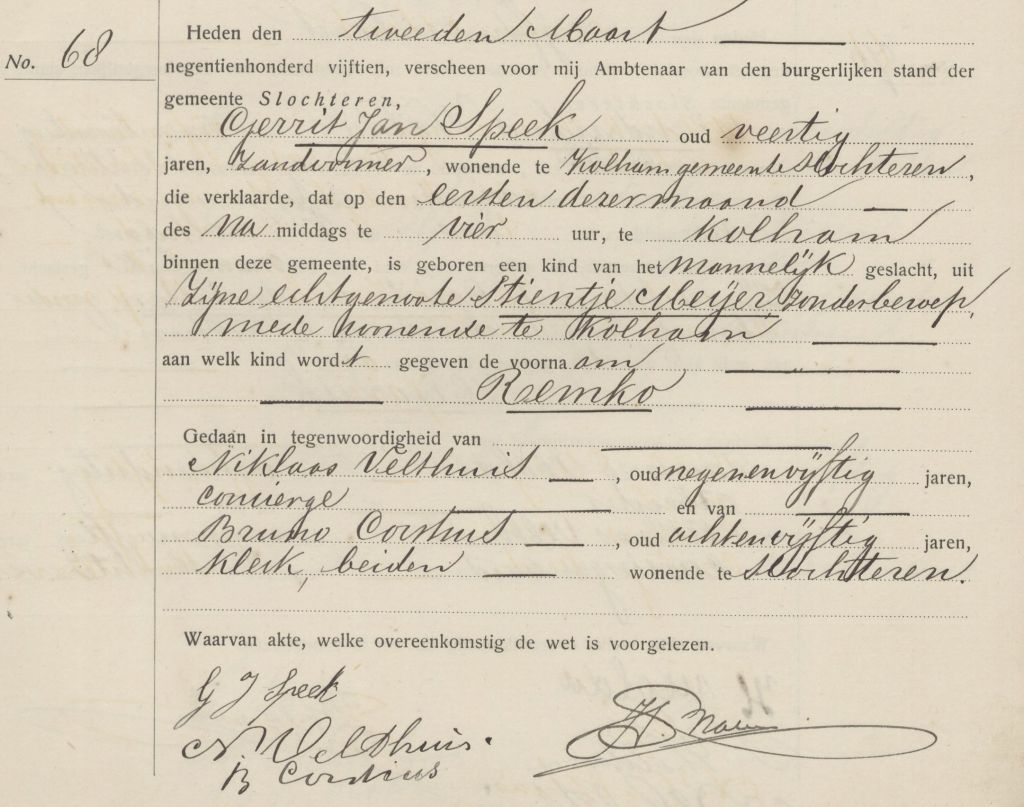 No. 68
Heden den tweeden Maart
negentienhonderd vijftien, verscheen voor mij Ambtenaar van den burgerlijken stand der
gemeente Slochteren,
Gerrit Jan Speek oud veertig
jaren, Zandvormer, wonende te Kolham gemeente Slochteren,
die verklaarde, dat op den eersten dezer maand
des na middags te vier uur, te Kolham
binnen deze gemeente, is geboren een kind van het mannelijk geslacht, uit
Zijne echtgenoote Stientje Meijer, zonder beroep,
mede wonende te Kolham
aan welk kind wordt gegeven de voornaam
Remko
Gedaan in tegenwoordigheid van
Niklaas Velthuis, oud negenenvijftig jaren,
concierge en van
Bruno Corthuis, oud achtenvijftig jaren,
klerk, beiden wonende te Slochteren.
Waarvan akte, welke overeenkomstig de wet is voorgelezen.
G J Speek
N. Veldhuis.
B